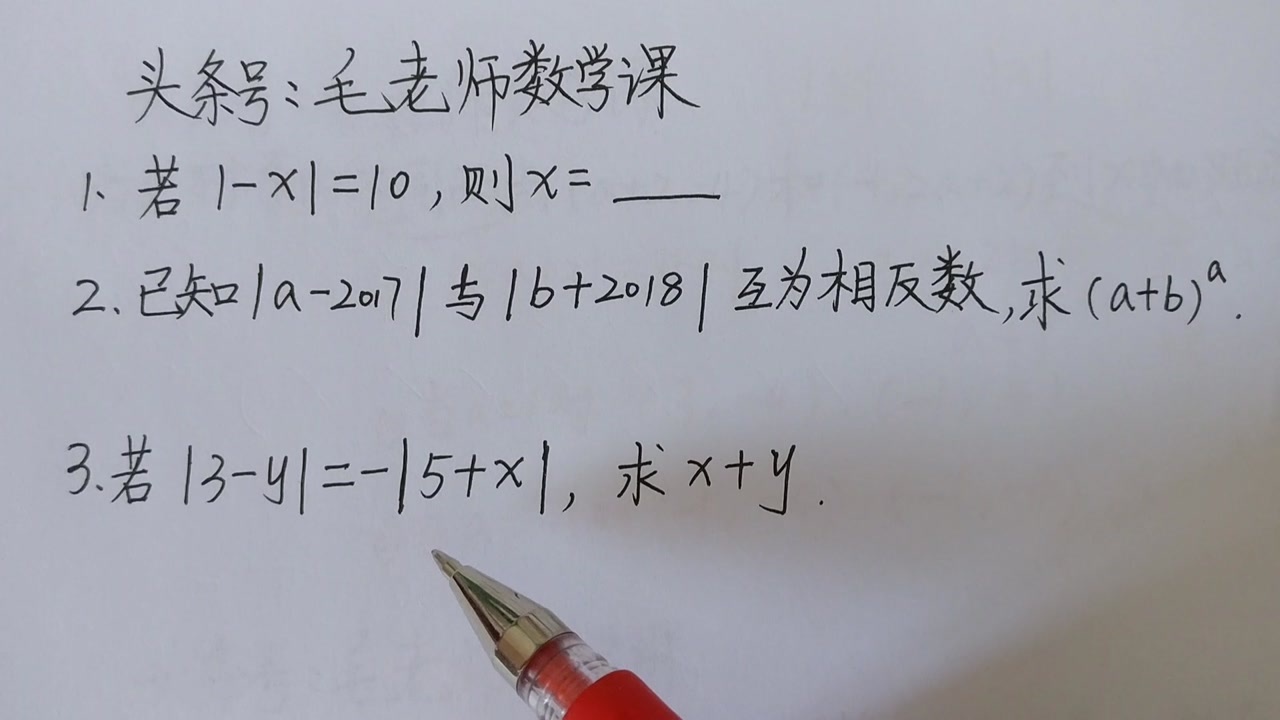 头条号:毛老师数学课
1、若|-x|=10,则x=____
2、已知|a-2017|与|b+2018|互为相反数,求(a+b)^a.
3.若|3-y|=-|5+x|,求x+y.